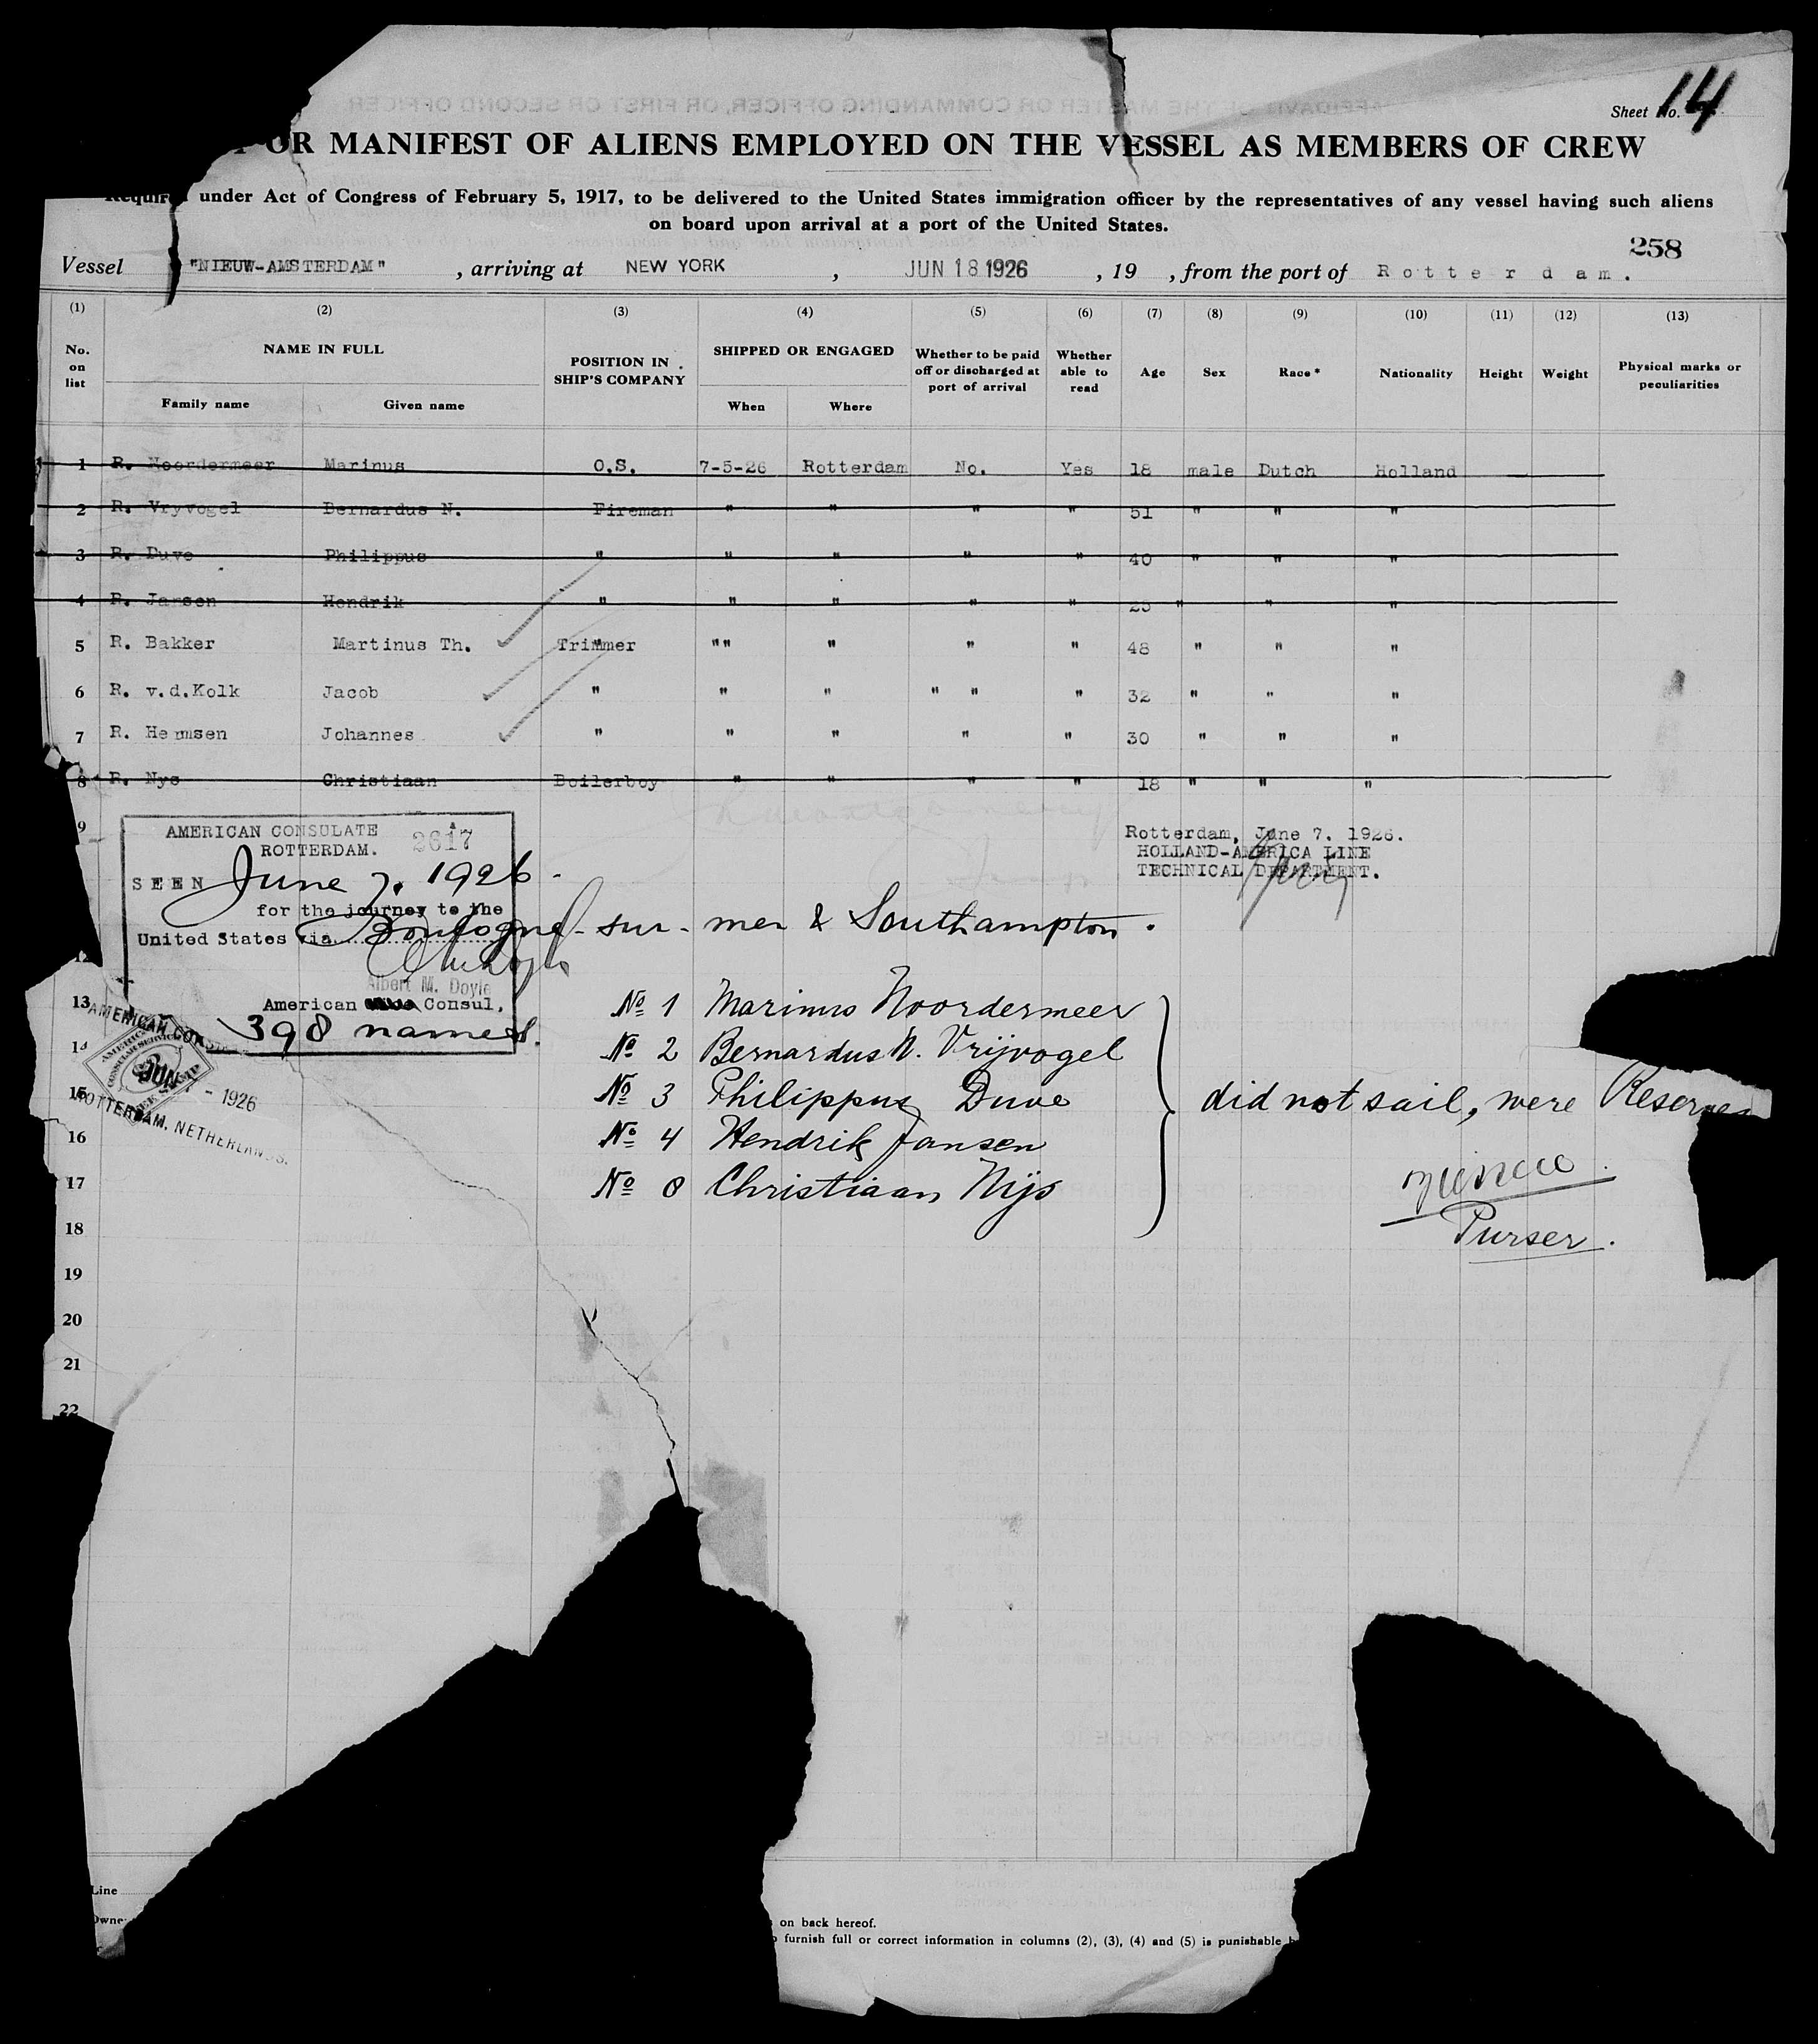 Sheet No. 14
OR MANIFEST OF ALIENS EMPLOYED ON THE VESSEL AS MEMBERS OF CREW
Required under Act of Congress of February 5, 1917, to be delivered to the United States immigration officer by the representatives of any vessel having such aliens
on board upon arrival at a port of the United States.
258
Vessel "NIEUW-AMSTERDAM", arriving at NEW YORK, JUN 18 1926, 19 , from the port of Rotterdam.
(1) (2) (3) (4) (5) (6) (7) (8) (9) (10) (11) (12) (13)
No. on list NAME IN FULL Family name Given name POSITION IN SHIP'S COMPANY SHIPPED OR ENGAGED When Where Whether to be paid off or discharged at port of arrival Whether able to read Age Sex Race* Nationality Height Weight Physical marks or peculiarities
1 R. Noordermeer Marinus O.S. 7-5-26 Rotterdam No. Yes 18 male Dutch Holland
2 R. Vryvogel Bernardus N. Fireman " " " " 51 " " "
3 R. Duve Philippus " " " " " 40 " " "
4 R. Jansen Hendrik " " " " " " " "
5 R. Bakker Martinus Th. Trimmer "" " " " 48 " " "
6 R. v.d.Kolk Jacob " " " " " " 32 " " "
7 R. Hermsen Johannes " " " " " 30 " " "
8 R. Nys Christiaan Boilerboy " " " " 18 " " "
9
AMERICAN CONSULATE 2617
ROTTERDAM.
SEEN June 7. 1926.
for the journey to the
United States via Boulogne-sur-mer & Southampton.
Albert M. Doyle
American Consul,
398 names.
Rotterdam, June 7. 1926.
HOLLAND-AMERICA LINE
TECHNICAL DEPARTMENT.
AMERICAN
JUN 7 - 1926
ROTTERDAM, NETHERLANDS.
13 No 1 Marinus Noordermeer
14 No 2 Bernardus N. Vrijvogel
15 No 3 Philippus Duve
did not sail, were Reserves
16 No 4 Hendrik Jansen
17 No 8 Christiaan Nijs
18
Purser.
19
20
21
22
Line
Owner
on back hereof.
furnish full or correct information in columns (2), (3), (4) and (5) is punishable